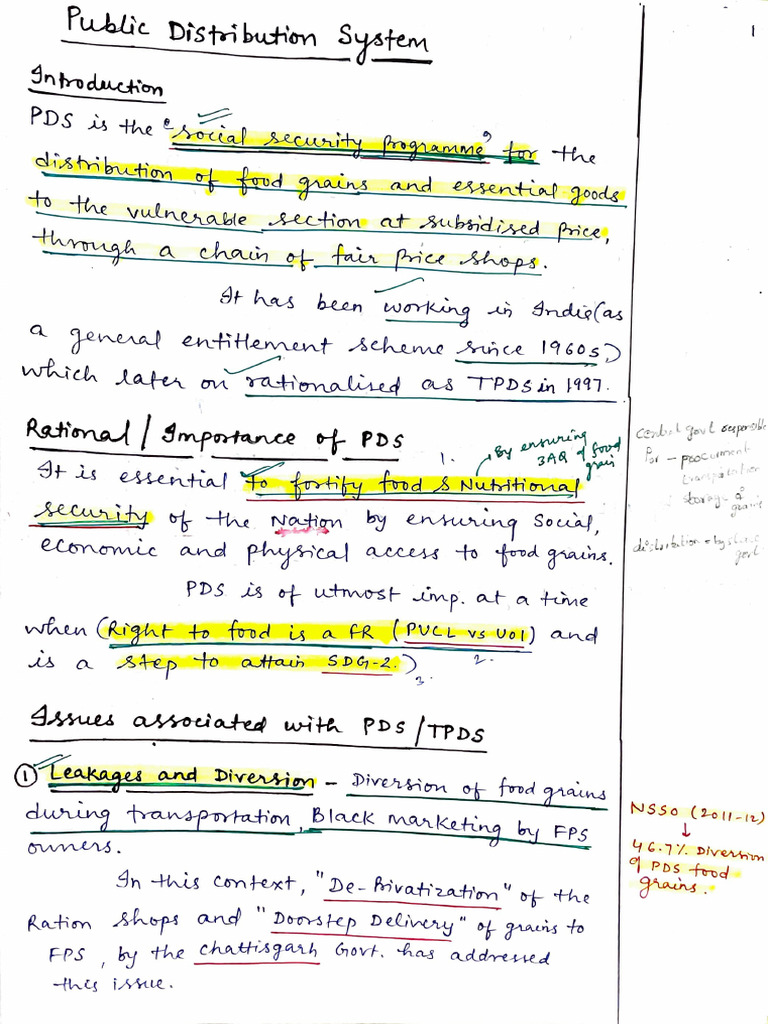 Public Distribution System
1
Introduction
PDS is the "social security programme" for the
distribution of food grains and essential goods
to the vulnerable section at subsidised price,
through a chain of fair price shops.
It has been working in India (as
a general entitlement scheme since 1960s)
which later on rationalised as TPDS in 1997.
Rational / Importance of PDS
1.
By ensuring
3AQ of food
grain
It is essential to fortify food & Nutritional
security of the Nation by ensuring social,
economic and physical access to food grains.
PDS is of utmost imp. at a time
when (Right to food is a FR (PUCL vs UOI) and
2.
is a step to attain SDG-2.)
3.
Central govt responsible
for - procurement
transportation
storage of
grains
distribution - by state
govt.
Issues associated with PDS / TPDS
① Leakages and Diversion - Diversion of food grains
during transportation, Black marketing by FPS
owners.
NSSO (2011-12)
↓
46.7% Diversion
of PDS food
grains.
In this context, "De-Privatization" of the
Ration shops and "Doorstep Delivery" of grains to
FPS, by the Chattisgarh Govt. has addressed
this issue.